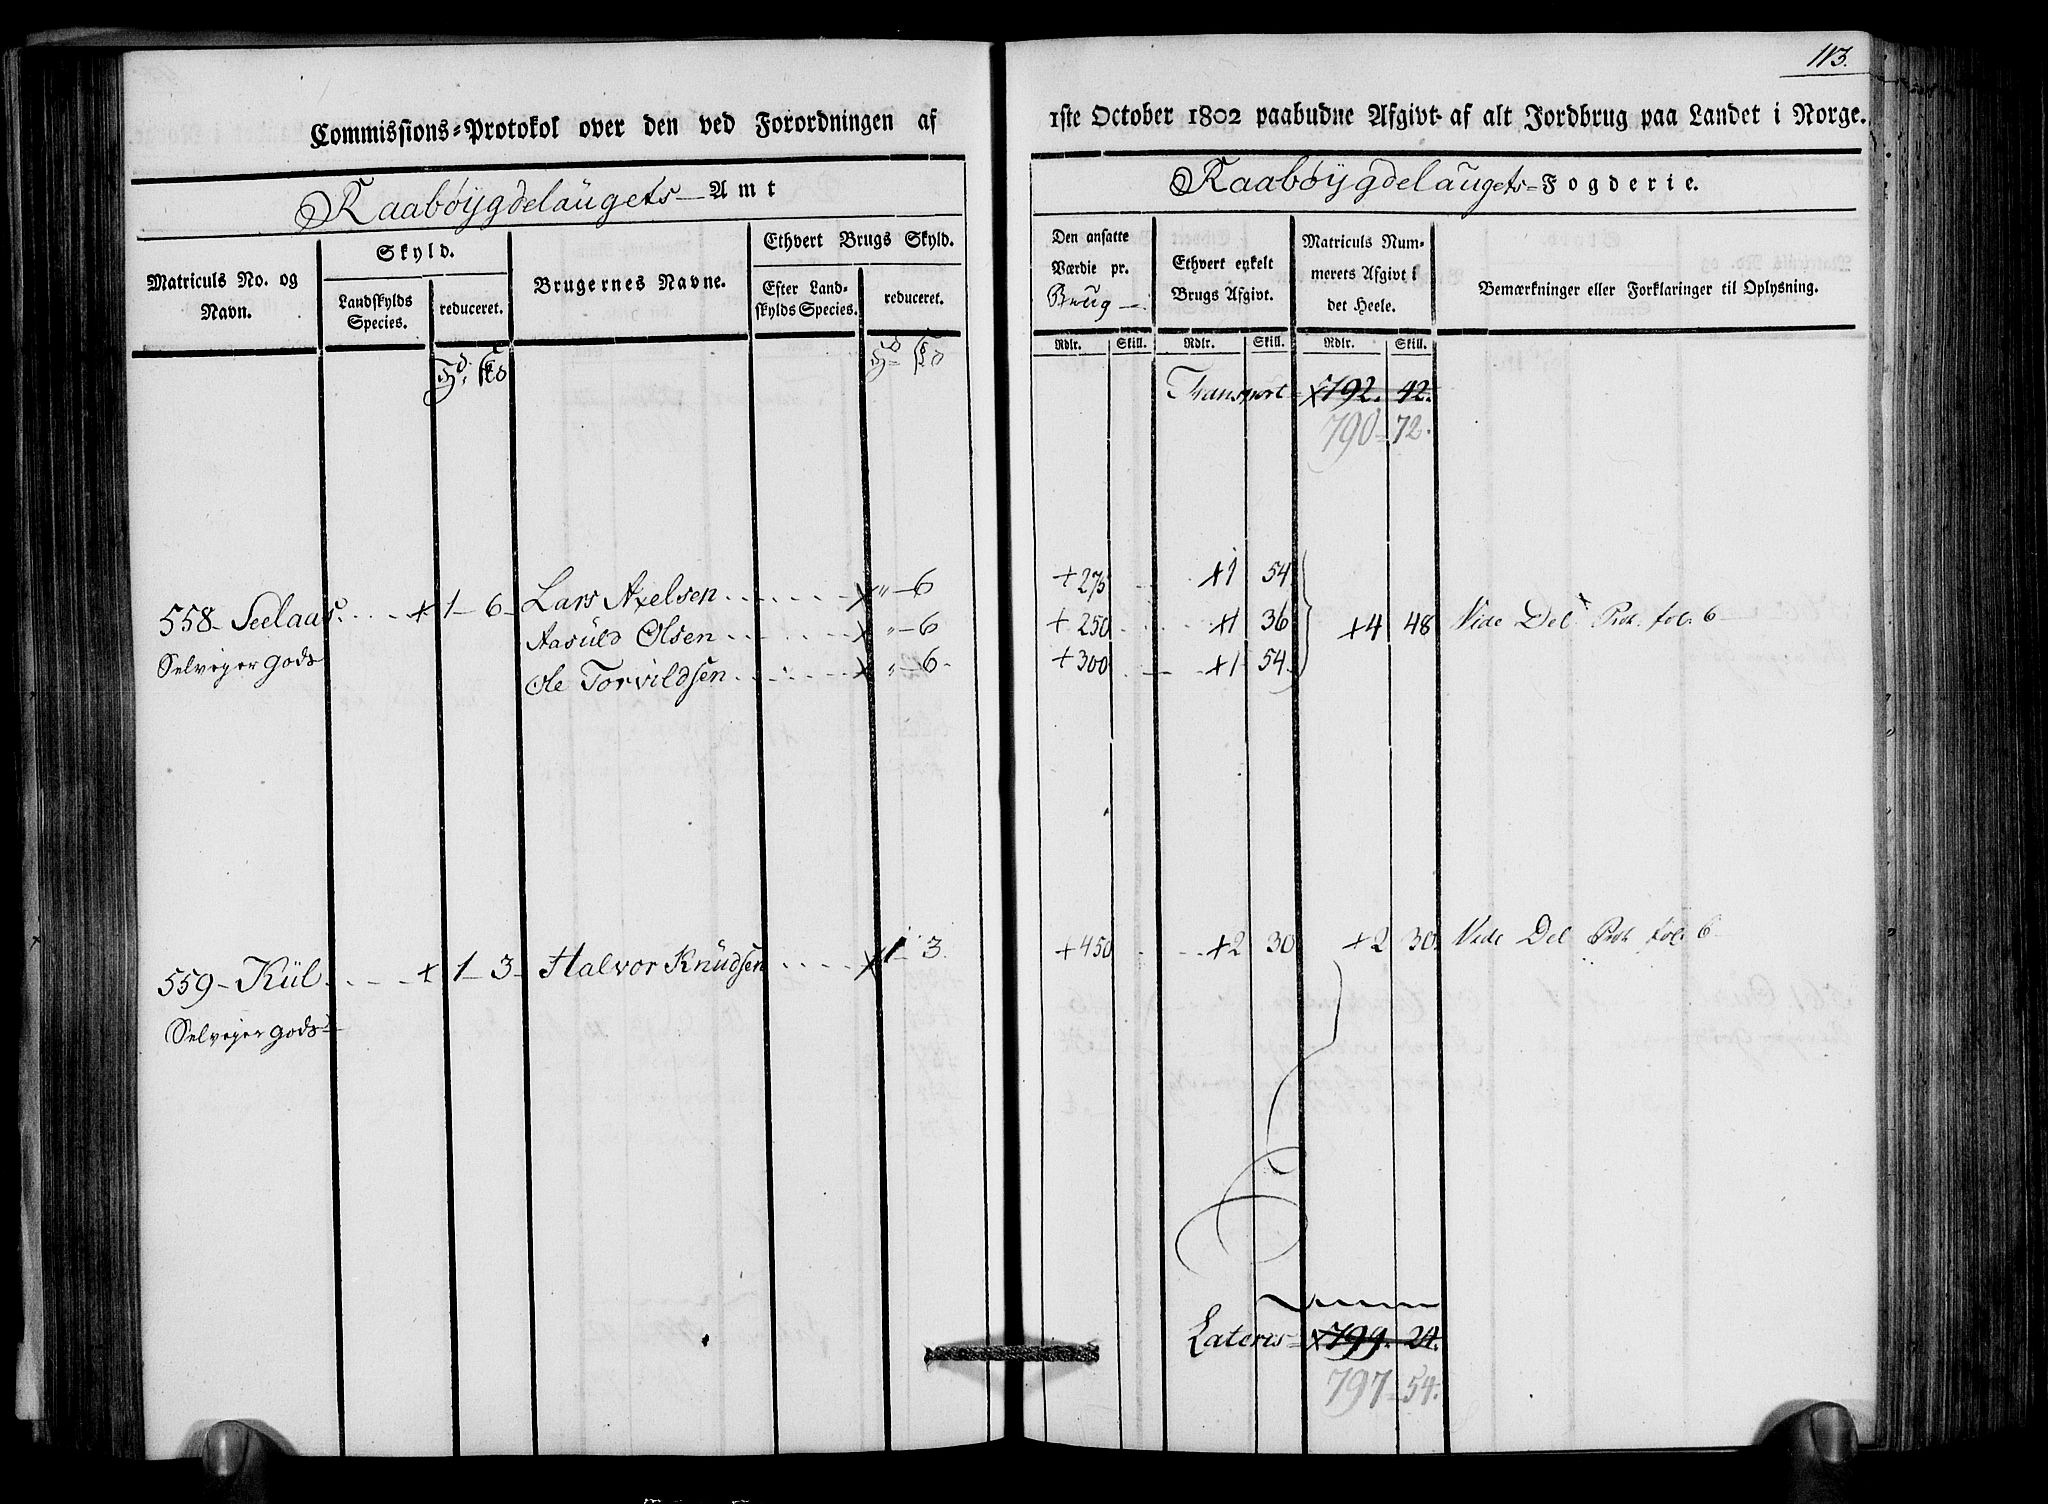 113.
Commissions=Protokol over den ved Forordningen af 1ste October 1802 paabudne Afgivt af alt Jordbrug paa Landet i Norge.
Raabøÿgdelaugets Amt
Raabøÿgdelaugets=Fogderie.
Matriculs No. og Navn.
Skyld.
Landskylds Species.
reduceret.
Brugernes Navne.
Ethvert Brugs Skyld.
Efter Landskylds Species.
reduceret.
Den ansatte Værdie pr. Brug
Ethvert enkelt Brugs Afgivt.
Matriculs Nummerets Afgivt i det Heele.
Bemærkninger eller Forklaringer til Oplysning.
Rdlr. Skill. Rdlr. Skill. Rdlr. Skill.
Transport x792. 42.
790=72.
558- Seelaas. + 1- 6- Lars Axelsen x " - 6 +275 x1 54
Aasuld Olsen x " - 6 +250 x1 36 x4 48 Vide Del Prot. fol. 6
Selveyer gods Ole Torvildsen x " - 6 +300 x1 54
559- Kiil + 1- 3- Halvor Knudsen x 1 - 3 +450 x2 30 x2 30. Vide Del Prot fol. 6
Selveyer gods
Lateris= x799. 24.
797-54.